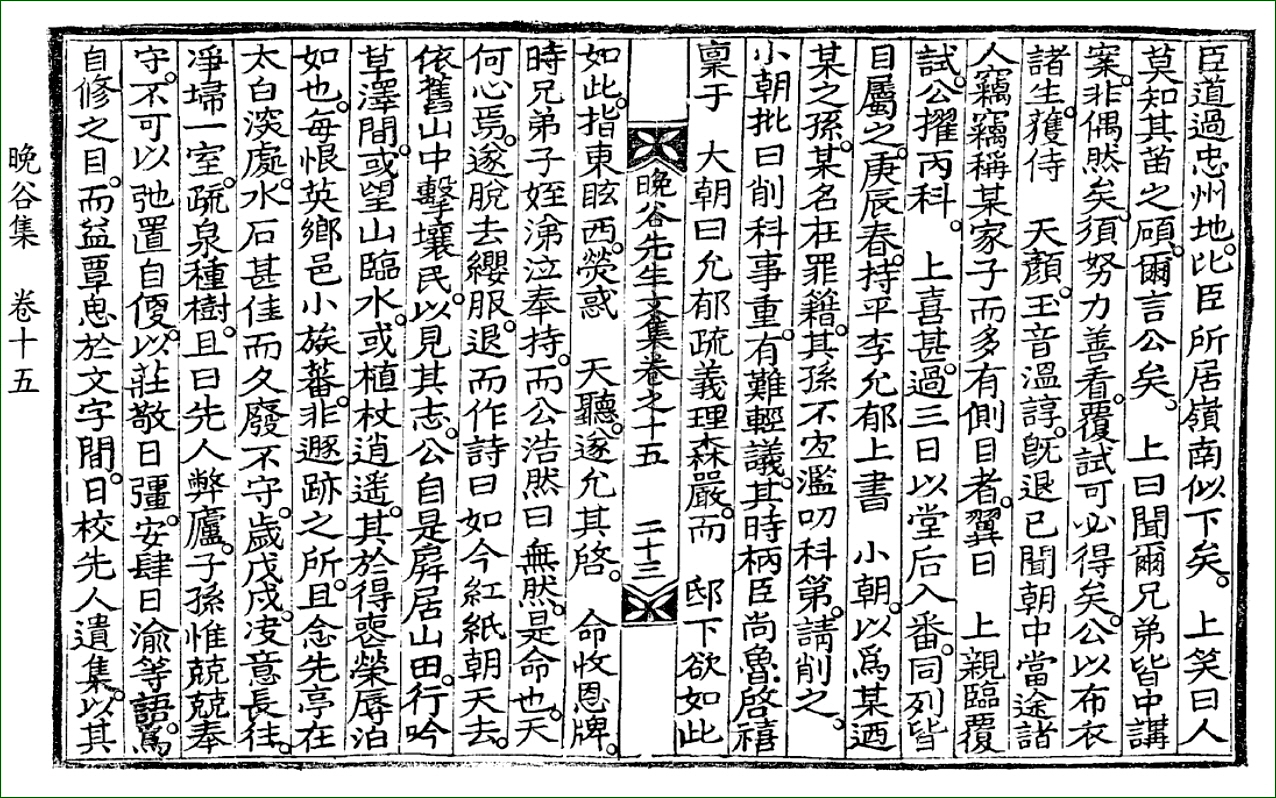 臣道過忠州地。比臣所居嶺南似下矣。 上笑曰人
莫知其苗之碩。爾言公矣。 上曰聞爾兄弟皆中講
案。非偶然矣。須努力善看。覆試可必得矣。公以布衣
諸生。獲侍 天顏。玉音溫諄。旣退已聞朝中當途諸
人竊竊稱某家子而多有側目者。翼日 上親臨覆
試。公擢丙科。 上喜甚。過三日以堂后入番。同列皆
目屬之。庚辰春。持平李允郁上書 小朝。以爲某迺
某之孫。某名在罪籍。其孫不宜濫叨科第。請削之。
小朝批曰削科事重。有難輕議。其時柄臣尙魯啓禧
稟于 大朝曰允郁疏義理森嚴。而 邸下欲如此
晩谷先生文集卷之十五 二十三
如此。指東眩西。熒惑 天聽。遂允其啓。 命收恩牌。
時兄弟子姪涕泣奉持。而公浩然曰無然。是命也。天
何心焉。遂脫去纓服。退而作詩曰如今紅紙朝天去。
依舊山中擊壤民。以見其志。公自是屛居山田。行吟
草澤間。或望山臨水。或植杖逍遙。其於得喪榮辱泊
如也。每恨英鄕邑小族蕃。非遯跡之所。且念先亭在
太白深處。水石甚佳而久廢不守。歲戊戌。决意長往。
淨埽一室。疏泉種樹。且曰先人弊廬。子孫惟兢兢奉
守。不可以弛置自傻。以莊敬日彊。安肆日渝等語。爲
自修之目。而益覃思於文字間。日校先人遺集。以其
晩谷集 卷十五